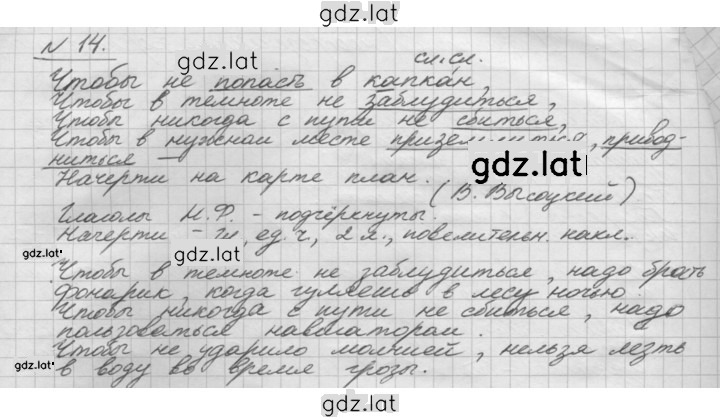 gdz.lat
N 14.
gdz.lat сл.сл.
Чтобы не попасть в капкан,
Чтобы в темноте не заблудиться,
Чтобы никогда с пути не сбиться,
Чтобы в нужном месте приземлиться, привод-
ниться —
gdz.lat
Начерти на карте план.
(В. Высоцкий)
Глаголы Н.Ф. - подчёркнуты.
Начерти - гл, ед.ч, 2 л., повелительн. накл.
gdz.lat gdz.lat
Чтобы в темноте не заблудиться, надо брать
фонарик, когда гуляешь в лесу ночью.
Чтобы никогда с пути не сбиться, надо
пользоваться навигатором.
Чтобы не ударило молнией, нельзя лезть
gdz.lat
в воду во время грозы.
gdz.lat